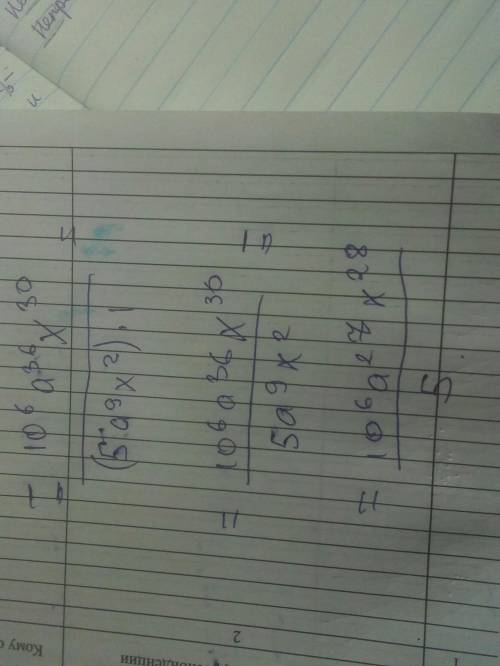 = 10⁶ a³⁶ x³⁰ / (5 · a⁹ x²) · 1 =
= 10⁶ a³⁶ x³⁰ / 5a⁹ x² =
= 10⁶ a²⁷ x²⁸ / 5 .
2
1
Кому